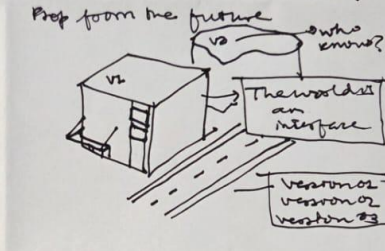 Prop from the future
V2
who
knows?
V1
The world as
an
interface
version 01
version 02
version 03